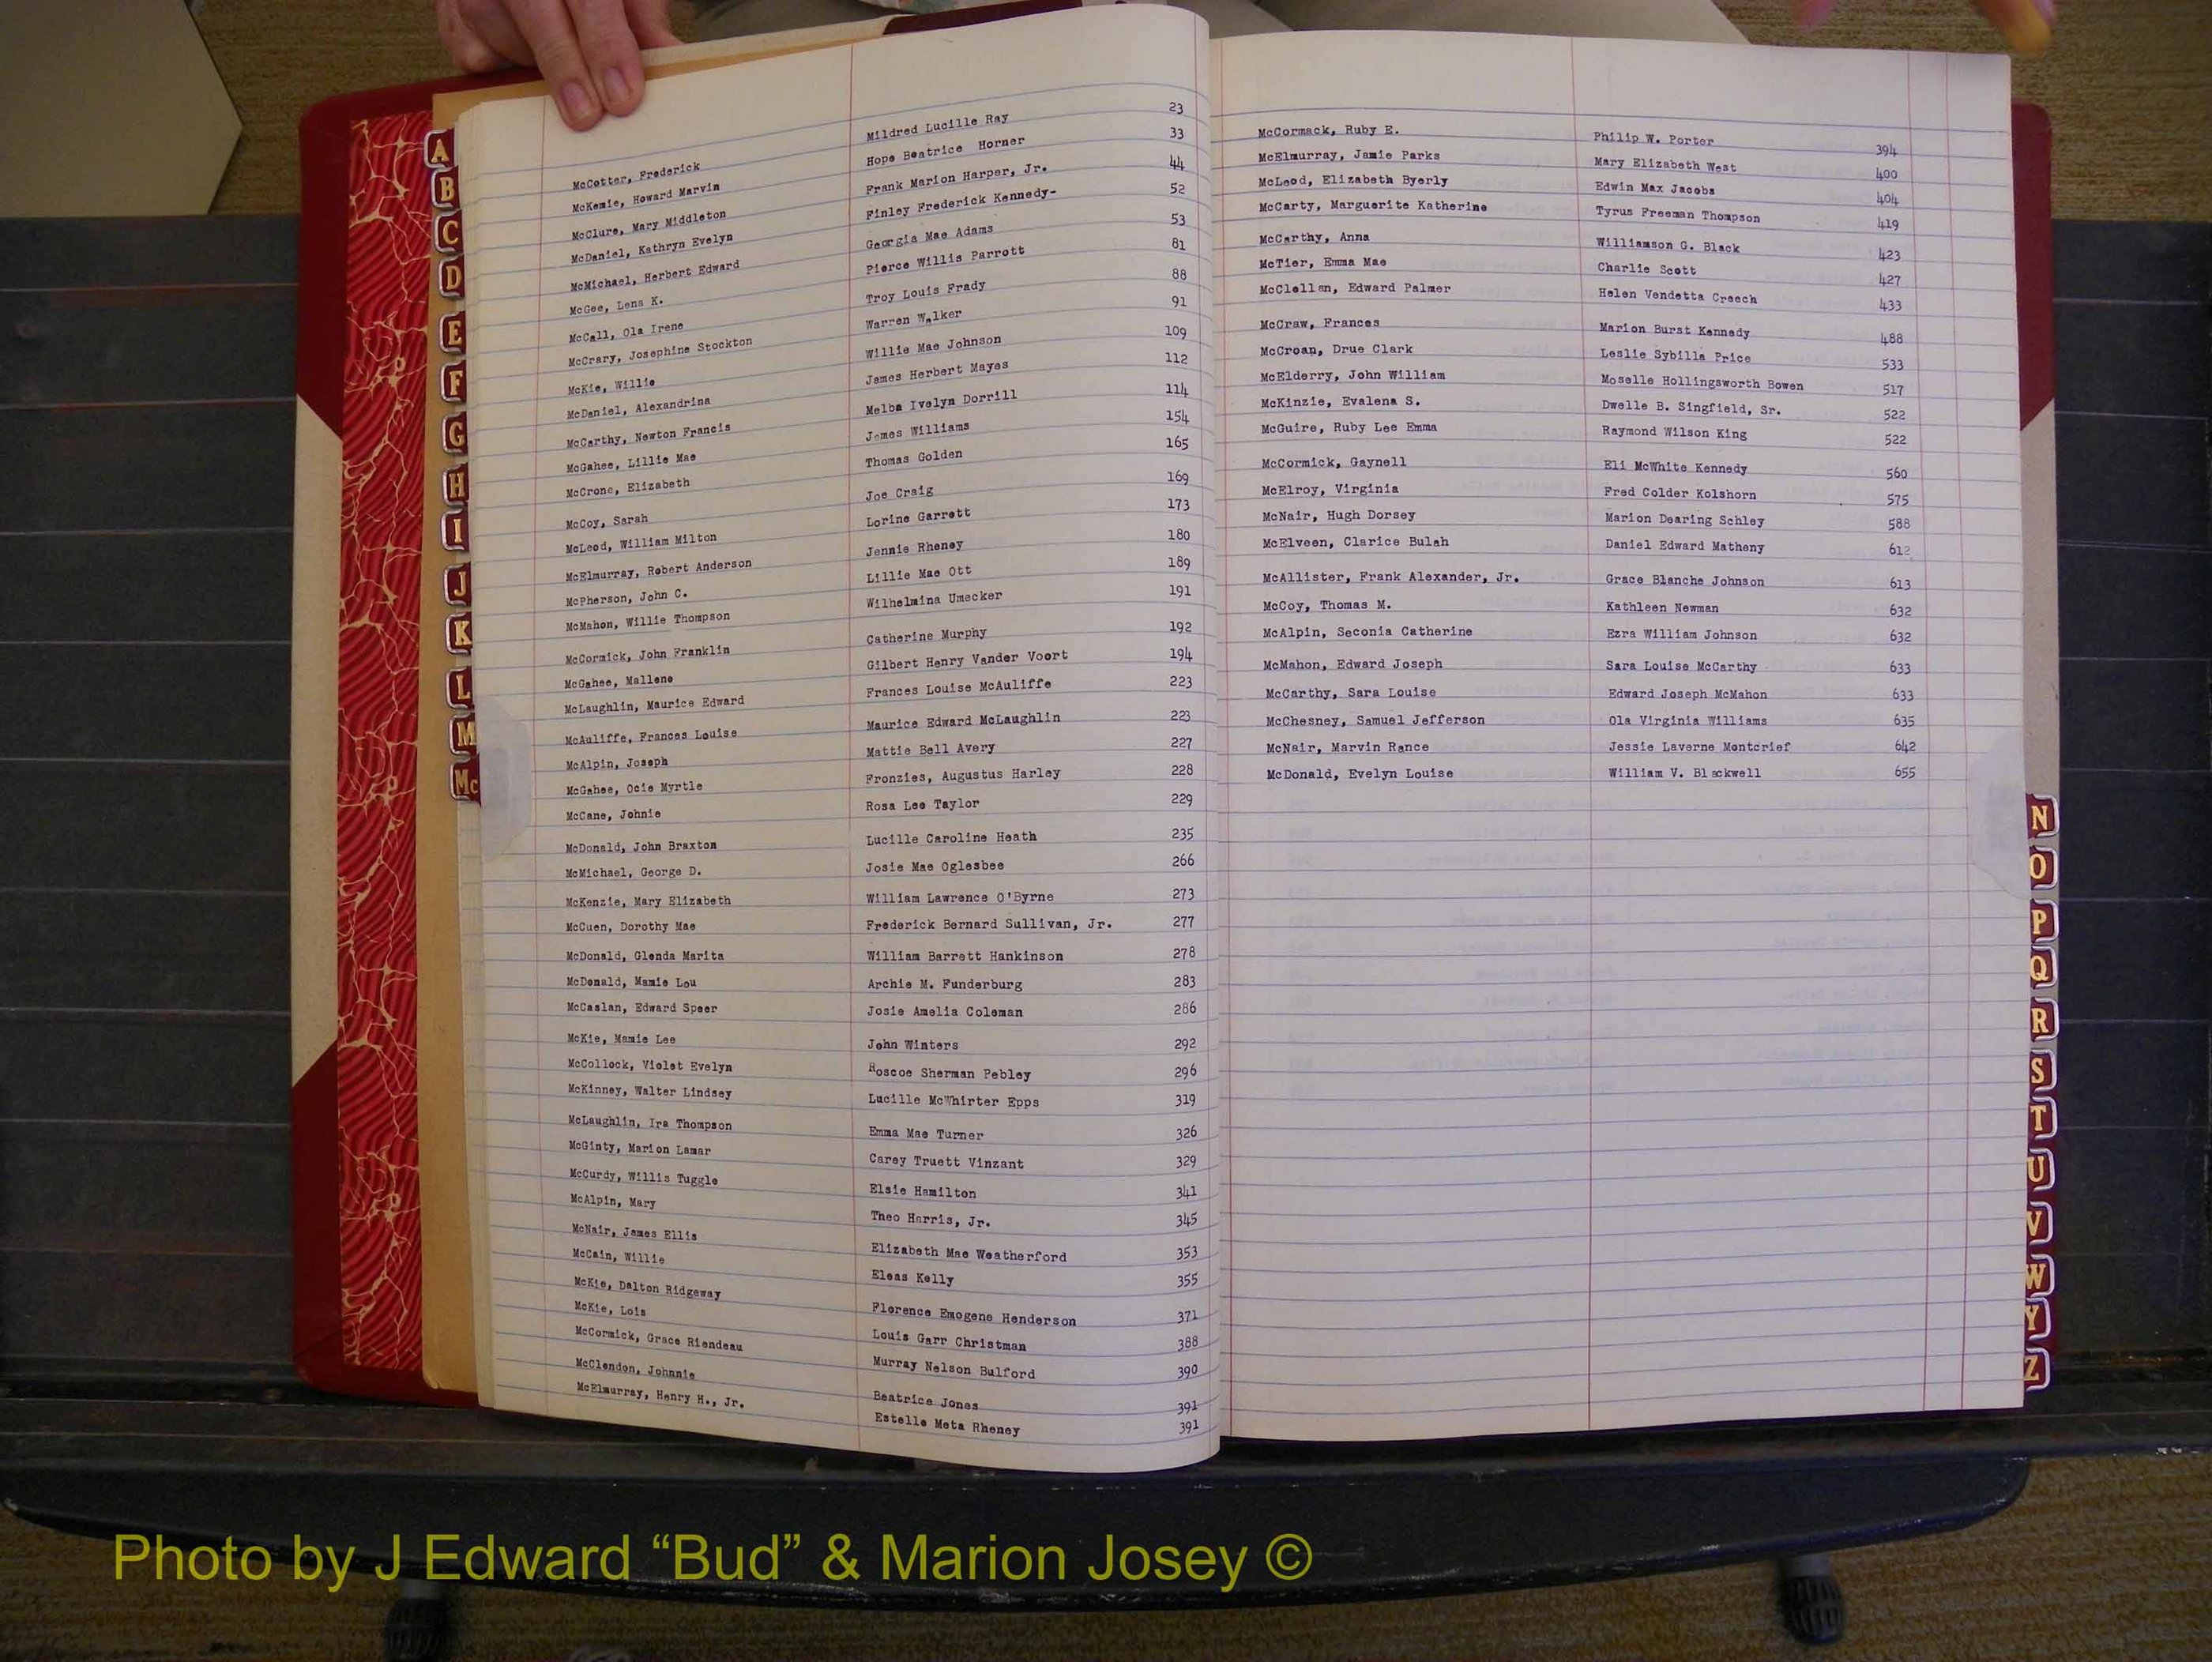 A
B
C
D
E
F
G
H
I
J
K
L
M
Mc
McCotter, Frederick Mildred Lucille Ray 23
McKemie, Howard Marvin Hope Beatrice Horner 33
McClure, Mary Middleton Frank Marion Harper, Jr. 44
McDaniel, Kathryn Evelyn Finley Frederick Kennedy- 52
McMichael, Herbert Edward Georgia Mae Adams 53
McGee, Lena K. Pierce Willis Parrott 81
McCall, Ola Irene Troy Louis Frady 88
McCrary, Josephine Stockton Warren Walker 91
McKie, Willie Willie Mae Johnson 109
McDaniel, Alexandrina James Herbert Mayes 112
McCarthy, Newton Francis Melba Ivelyn Dorrill 114
McGahee, Lillie Mae James Williams 154
McCrone, Elizabeth Thomas Golden 165
McCoy, Sarah Joe Craig 169
McLeod, William Milton Lorine Garrett 173
McElmurray, Robert Anderson Jennie Rheney 180
McPherson, John C. Lillie Mae Ott 189
McMahon, Willie Thompson Wilhelmina Umecker 191
McCormick, John Franklin Catherine Murphy 192
McGahee, Mallene Gilbert Henry Vander Voort 194
McLaughlin, Maurice Edward Frances Louise McAuliffe 223
McAuliffe, Frances Louise Maurice Edward McLaughlin 223
McAlpin, Joseph Mattie Bell Avery 227
McGahee, Ocie Myrtle Fronzies, Augustus Harley 228
McCane, Johnie Rosa Lee Taylor 229
McDonald, John Braxton Lucille Caroline Heath 235
McMichael, George D. Josie Mae Oglesbee 266
McKenzie, Mary Elizabeth William Lawrence O'Byrne 273
McCuen, Dorothy Mae Frederick Bernard Sullivan, Jr. 277
McDonald, Glenda Marita William Barrett Hankinson 278
McDonald, Mamie Lou Archie M. Funderburg 283
McCaslan, Edward Speer Josie Amelia Coleman 286
McKie, Mamie Lee John Winters 292
McCollock, Violet Evelyn Roscoe Sherman Pebley 296
McKinney, Walter Lindsey Lucille McWhirter Epps 319
McLaughlin, Ira Thompson Emma Mae Turner 326
McGinty, Marion Lamar Carey Truett Vinzant 329
McCurdy, Willis Tuggle Elsie Hamilton 341
McAlpin, Mary Theo Harris, Jr. 345
McNair, James Ellis Elizabeth Mae Weatherford 353
McCain, Willie Eleas Kelly 355
McKie, Dalton Ridgeway Florence Emogene Henderson 371
McKie, Lois Louis Garr Christman 388
McCormick, Grace Riendeau Murray Nelson Bulford 390
McClendon, Johnnie Beatrice Jones 391
McElmurray, Henry H., Jr. Estelle Meta Rheney 391
McCormack, Ruby E. Philip W. Porter 394
McElmurray, Jamie Parks Mary Elizabeth West 400
McLeod, Elizabeth Byerly Edwin Max Jacobs 404
McCarty, Marguerite Katherine Tyrus Freeman Thompson 419
McCarthy, Anna Williamson G. Black 423
McTier, Emma Mae Charlie Scott 427
McClellan, Edward Palmer Helen Vendetta Creech 433
McCraw, Frances Marion Burst Kennedy 488
McCroan, Drue Clark Leslie Sybilla Price 533
McElderry, John William Moselle Hollingsworth Bowen 517
McKinzie, Evalena S. Dwelle B. Singfield, Sr. 522
McGuire, Ruby Lee Emma Raymond Wilson King 522
McCormick, Gaynell Eli McWhite Kennedy 560
McElroy, Virginia Fred Colder Kolshorn 575
McNair, Hugh Dorsey Marion Dearing Schley 588
McElveen, Clarice Bulah Daniel Edward Matheny 612
McAllister, Frank Alexander, Jr. Grace Blanche Johnson 613
McCoy, Thomas M. Kathleen Newman 632
McAlpin, Seconia Catherine Ezra William Johnson 632
McMahon, Edward Joseph Sara Louise McCarthy 633
McCarthy, Sara Louise Edward Joseph McMahon 633
McChesney, Samuel Jefferson Ola Virginia Williams 635
McNair, Marvin Rance Jessie Laverne Montcrief 642
McDonald, Evelyn Louise William V. Blackwell 655
N
O
P
Q
R
S
T
U
V
W
Y
Z
Photo by J Edward “Bud” & Marion Josey ©